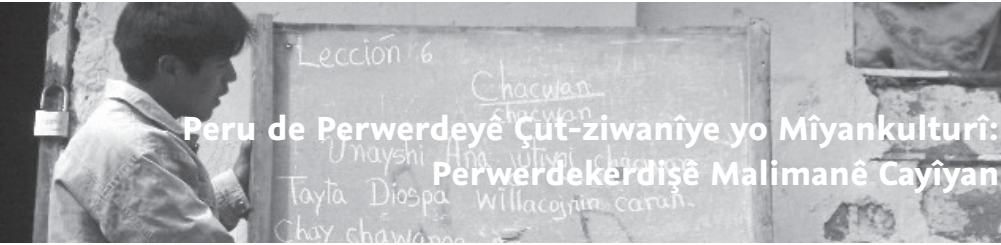 Lección 6
Chacwan
chacwan
Peru de Perwerdeyê Çut-ziwanîye yo Mîyankulturî:
Unayshi Ana
Perwerdekerdişê Malimanê Cayîyan
Tayta Diospa willacojnin caran.
Chay